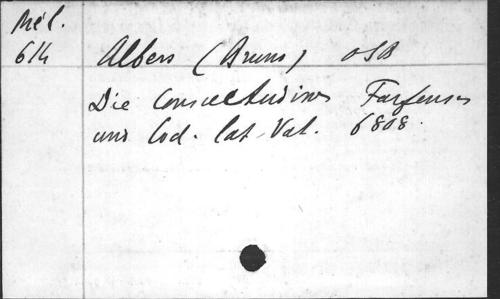 Mél.
614 Albers (Bruno) OSB
Die Consuetudines Farfenses
und Cod. lat. Vat. 6808.